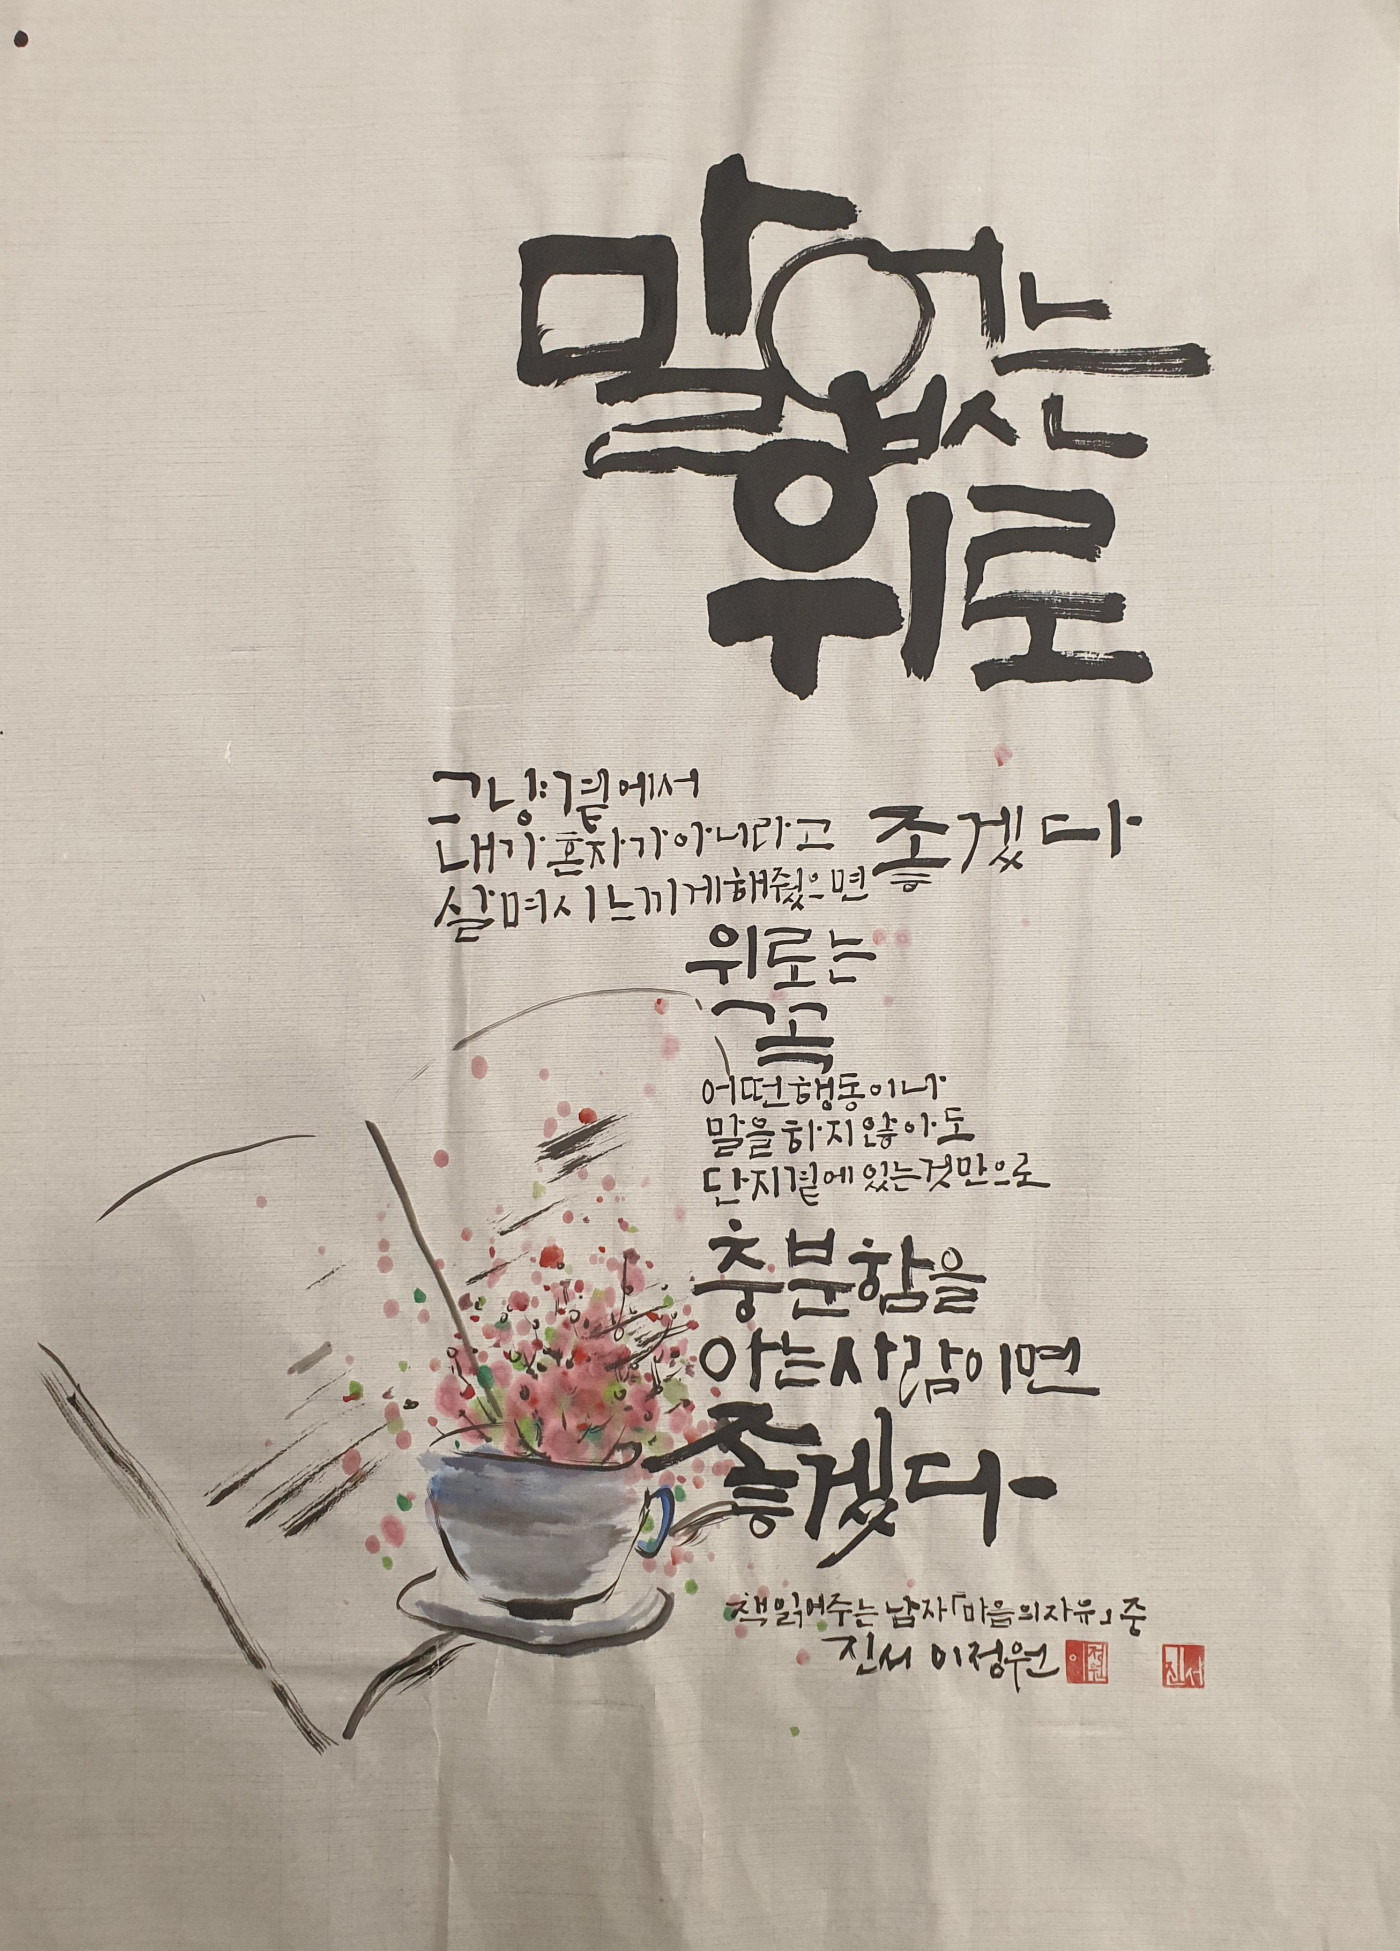 말없는
위로
그냥 곁에서
내가 혼자가 아니라고
살며시 느끼게 해줬으면
좋겠다
위로는
꼭
어떤 행동이나
말을 하지 않아도
단지 곁에 있는 것만으로
충분함을
아는 사람이면
좋겠다
책 읽어주는 남자 「마음의 자유」 중
진서 이정원
이정원
진서